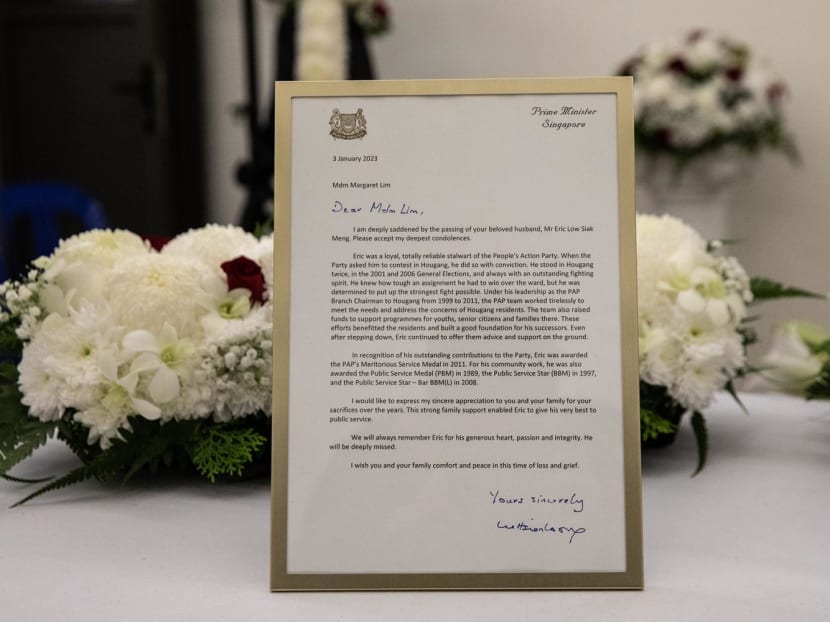 Prime Minister
Singapore
3 January 2023
Mdm Margaret Lim
Dear Mdm Lim,
I am deeply saddened by the passing of your beloved husband, Mr Eric Low Siak
Meng. Please accept my deepest condolences.
Eric was a loyal, totally reliable stalwart of the People's Action Party. When the
Party asked him to contest in Hougang, he did so with conviction. He stood in Hougang
twice, in the 2001 and 2006 General Elections, and always with an outstanding fighting
spirit. He knew how tough an assignment he had to win over the ward, but he was
determined to put up the strongest fight possible. Under his leadership as the PAP
Branch Chairman to Hougang from 1999 to 2011, the PAP team worked tirelessly to
meet the needs and address the concerns of Hougang residents. The team also raised
funds to support programmes for youths, senior citizens and families there. These
efforts benefitted the residents and built a good foundation for his successors. Even
after stepping down, Eric continued to offer them advice and support on the ground.
In recognition of his outstanding contributions to the Party, Eric was awarded
the PAP's Meritorious Service Medal in 2011. For his community work, he was also
awarded the Public Service Medal (PBM) in 1989, the Public Service Star (BBM) in 1997,
and the Public Service Star – Bar BBM(L) in 2008.
I would like to express my sincere appreciation to you and your family for your
sacrifices over the years. This strong family support enabled Eric to give his very best to
public service.
We will always remember Eric for his generous heart, passion and integrity. He
will be deeply missed.
I wish you and your family comfort and peace in this time of loss and grief.
Yours sincerely